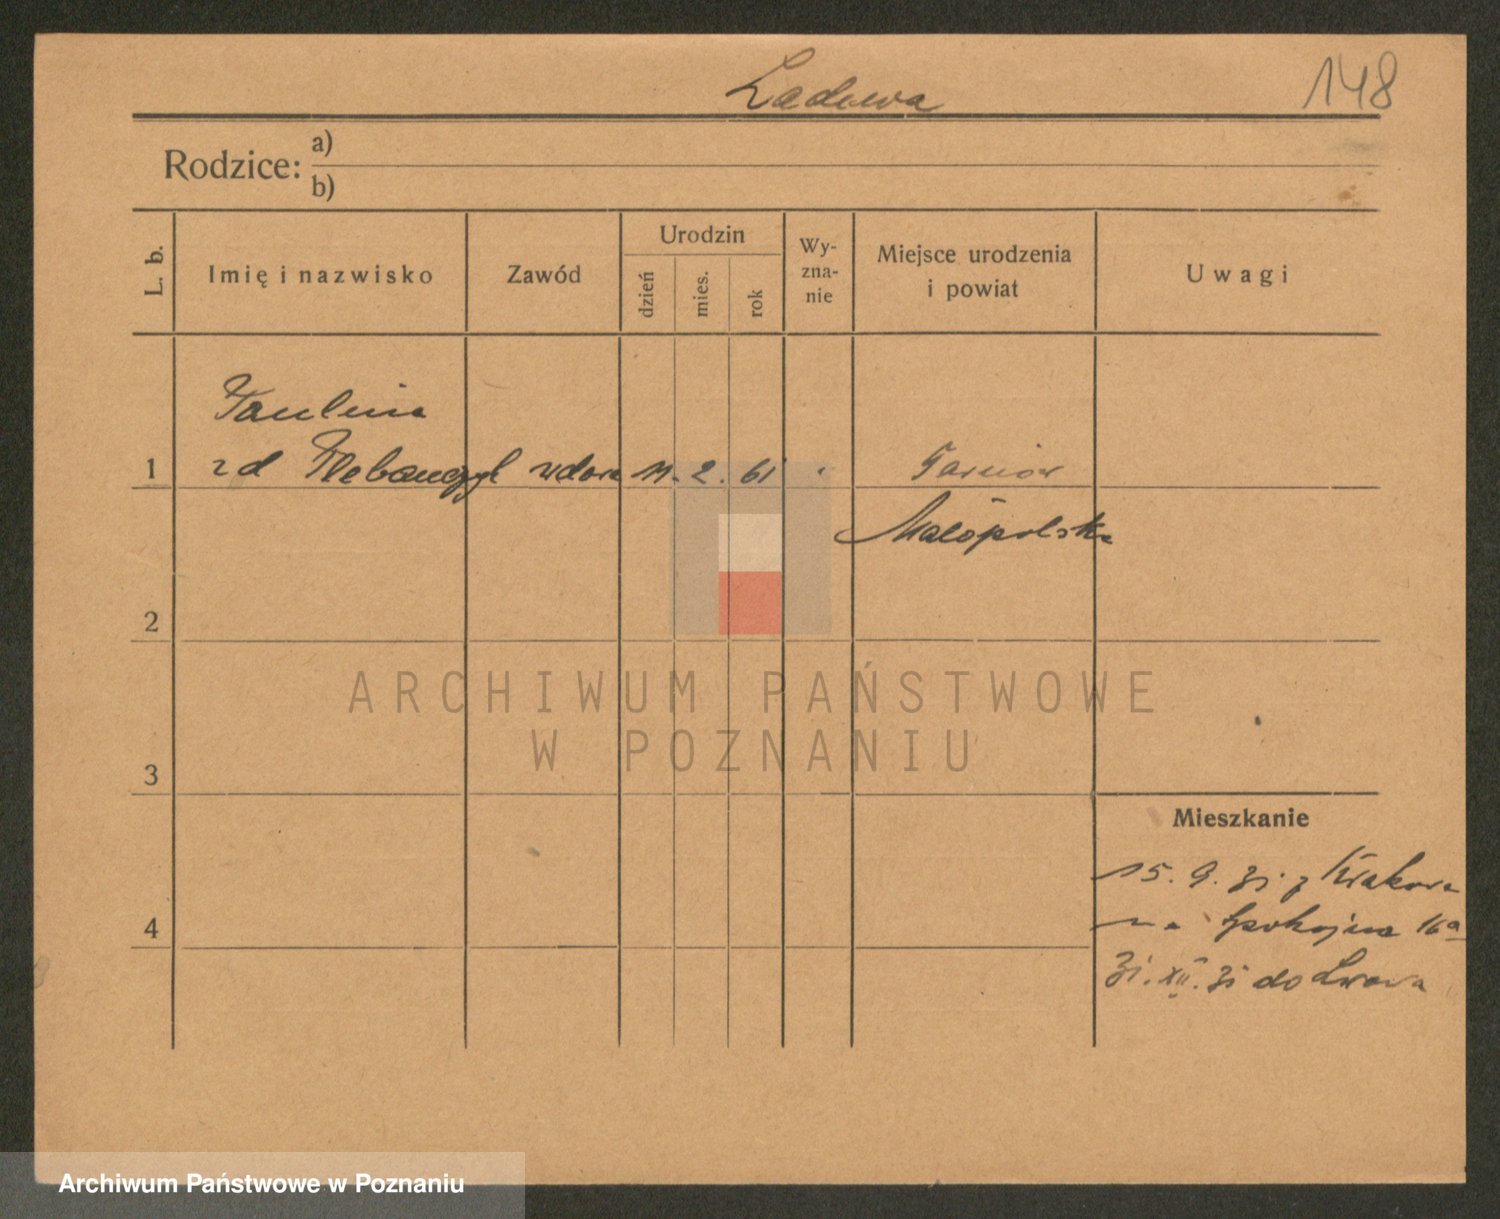 Ladowa
148
Rodzice:
a)
b)
L. b.
Imię i nazwisko
Zawód
Urodzin
dzień
mies.
rok
Wy-
zna-
nie
Miejsce urodzenia
i powiat
Uwagi
Paulina
1 zd Plebańczyk wdowa 11. 2. 61 Tarnów
Małopolska
2
3
4
Mieszkanie
15. 9. 31 z Krakowa
na Spokojna 16a
31. XII. 31 do Lwowa
ARCHIWUM PAŃSTWOWE
W POZNANIU
Archiwum Państwowe w Poznaniu